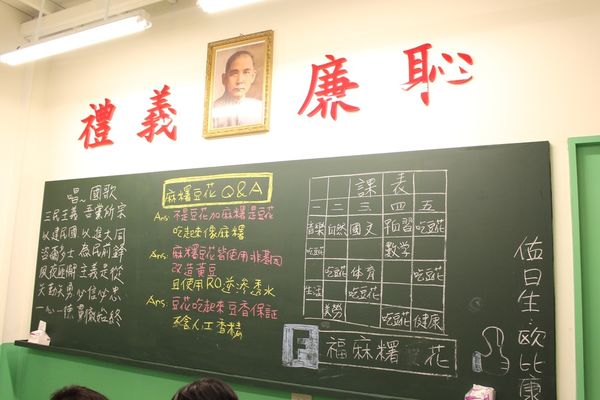 禮 義 廉 恥
唱~國歌
三民主義 吾黨所宗
以建民國 以進大同
咨爾多士 為民前鋒
夙夜匪懈 主義是從
矢勤矢勇 必信必忠
一心一德 貫徹始終
麻糬豆花 Q&A
Ans: 不是豆花加麻糬是豆花
吃起來像麻糬
Ans: 麻糬豆花皆使用非基因
改造黃豆
且使用RO逆滲透水
Ans: 豆花吃起來豆香保証
不含人工香精
課表
一 二 三 四 五
音樂 自然 國文 預習 吃豆花
吃豆花 數學
吃豆花 體育 吃豆花
生活 吃豆花
美勞 吃豆花 健康
福麻糬 花
值日生:歐比康